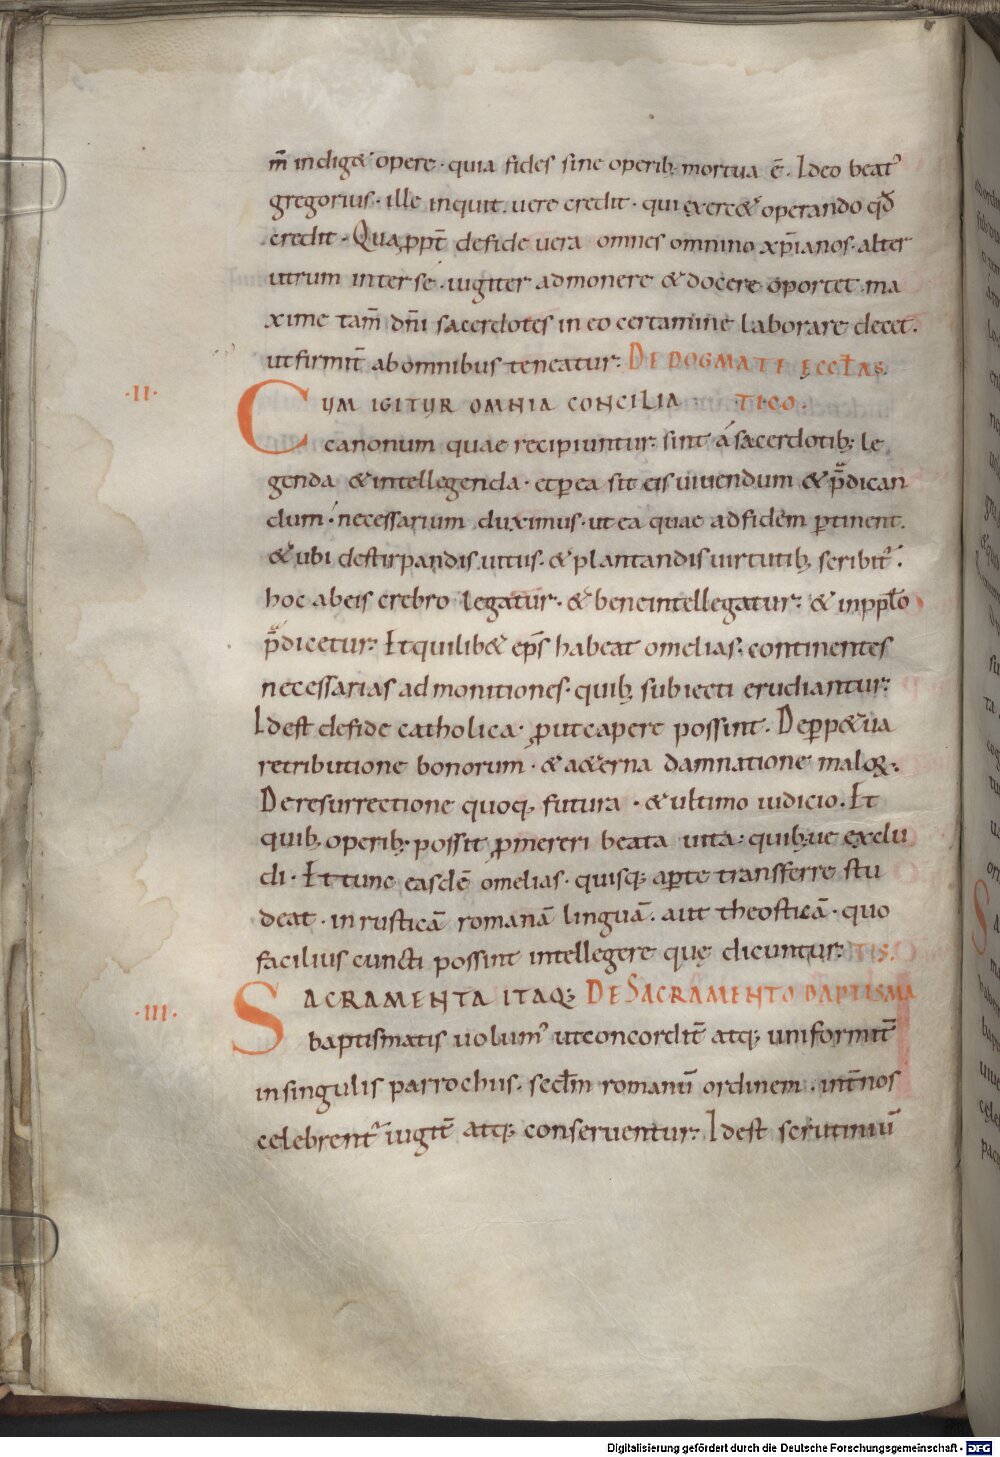 m̄ indiget opere · quia fides sine operib; mortua ē · Ideo beat᾽
gregorius · ille inquit · uere credit · qui exercet operando qđ
credit · Quapropt̄ de fide uera omnes omnino xp̄ianos · alter
utrum inter se · iugiter admonere & docere oportet · ma
xime tam̄ dn̄i sacerdotes in eo certamine laborare decet ·
ut firmit̄ ab omnibus teneatur : DE DOGMATE ECCŁAS
·II· CUM IGITUR OMNIA CONCILIA TICO ·
canonum quae recipiuntur · sint a sacerdotib; le
genda & intellegenda · et per ea sit eis uiuendum & p̄dican
dum · necessarium duximus · ut ea quae ad fidem ꝑtinent ·
& ubi de stirpandis uitiis · & plantandis uirtutib; scribit᾽ ·
hoc ab eis crebro legatur · & bene intellegatur : & in ppƚo
p̄dicetur : Et quilib& ep̄s habeat omelias ; continentes
necessarias admonitiones · quib; subiecti erudiantur :
Idest de fide catholica · ꝓut capere possint · De ꝑp&ua
retributione bonorum · & a&erna damnatione maloꝝ :
De resurrectione quoq; futura · & ultimo iudicio · Et
quib; operib; possit ꝓmereri beata uita · quib; ue exclu
di · Et tunc easdē omelias · quisq; aꝑte transferre stu
deat · in rusticā romanā linguā · aut theotiscā · quo
facilius cuncti possint intellegere quę dicuntur : TIS ·
·III· SACRAMENTA ITAQ; DE SACRAMENTO BAPTISMA
baptismatis uolum᾽ ut concordit̄ atq; uniformit̄
in singulis parrochiis · secđm romanū ordinem · int̄ nos
celebrent᾽ iugit̄ atq; conseruentur : Idest scrutiniū
Digitalisierung gefördert durch die Deutsche Forschungsgemeinschaft - DFG